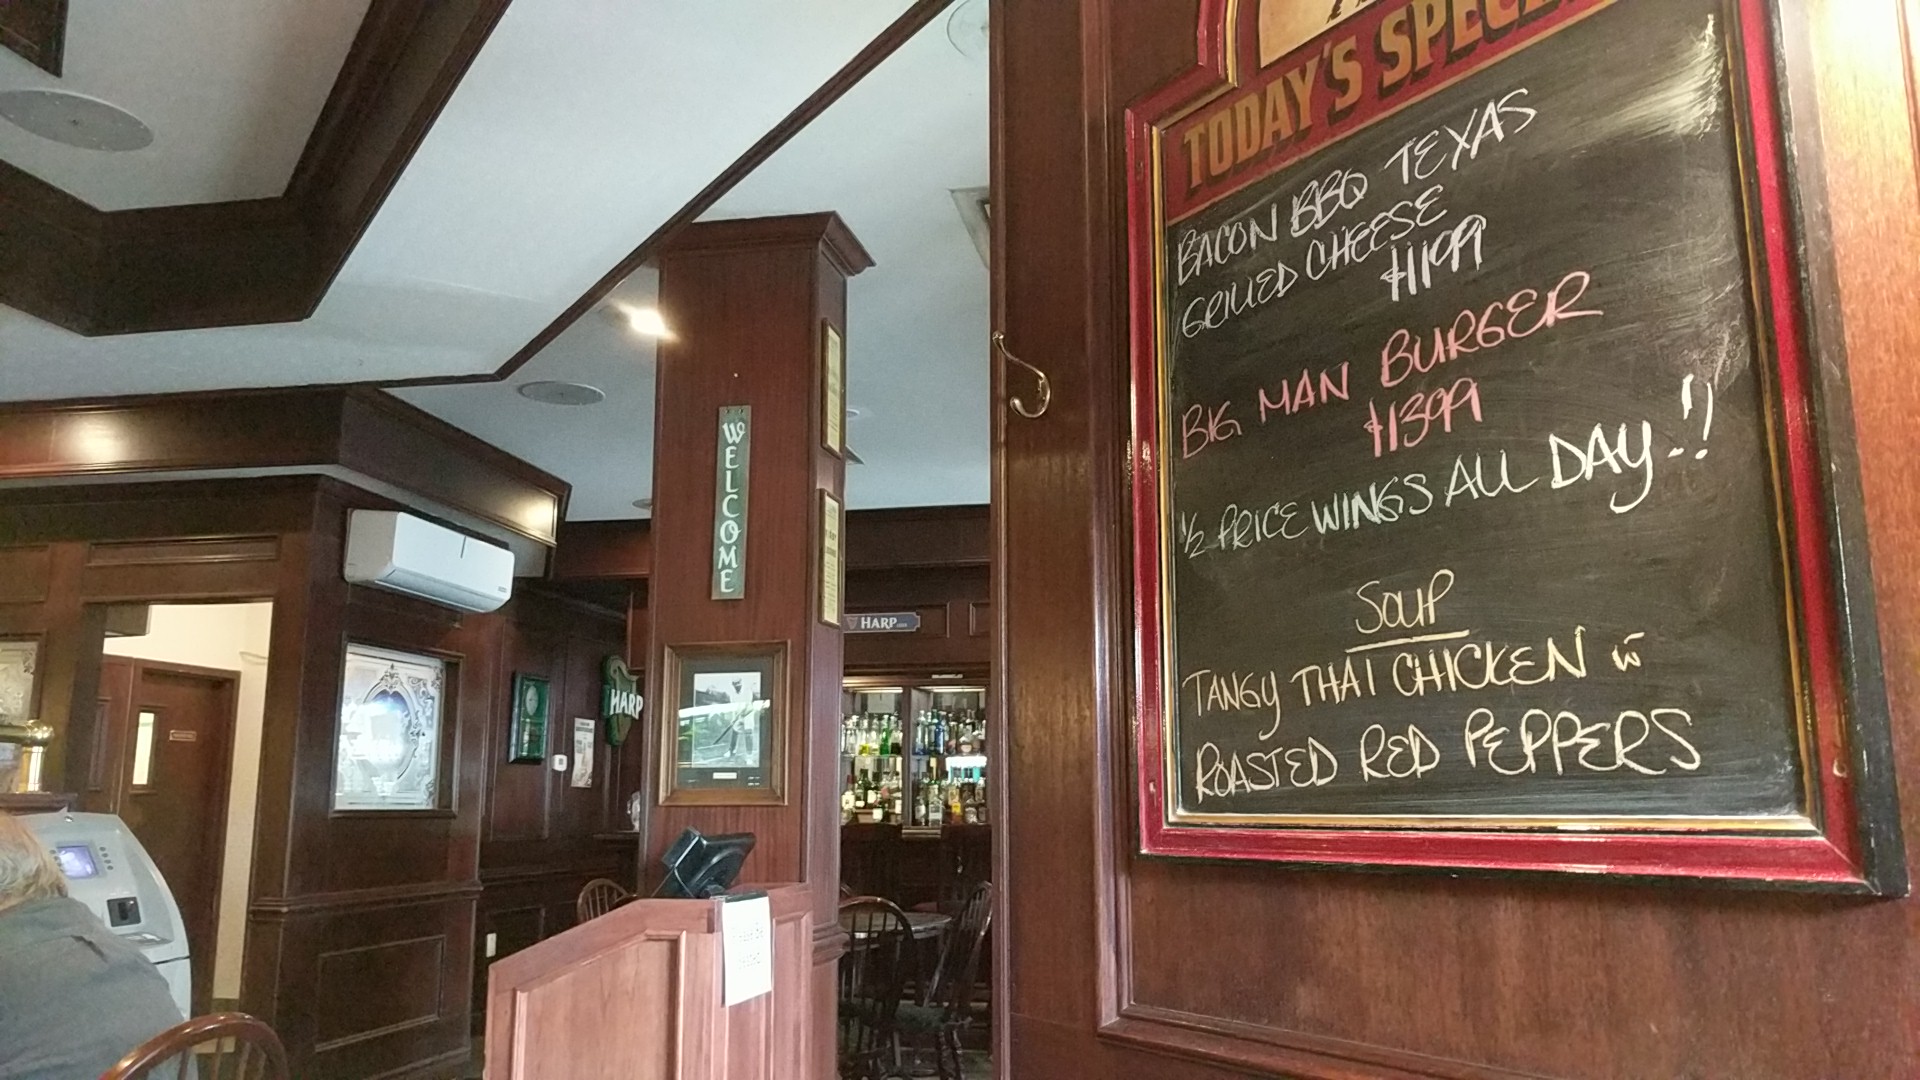 TODAY'S
BACON BBQ TEXAS
GRILLED CHEESE
$1199
BIG MAN BURGER
$1399
1/2 PRICE WINGS ALL DAY!!
SOUP
TANGY THAI CHICKEN w
ROASTED RED PEPPERS
WELCOME
HARP
HARP